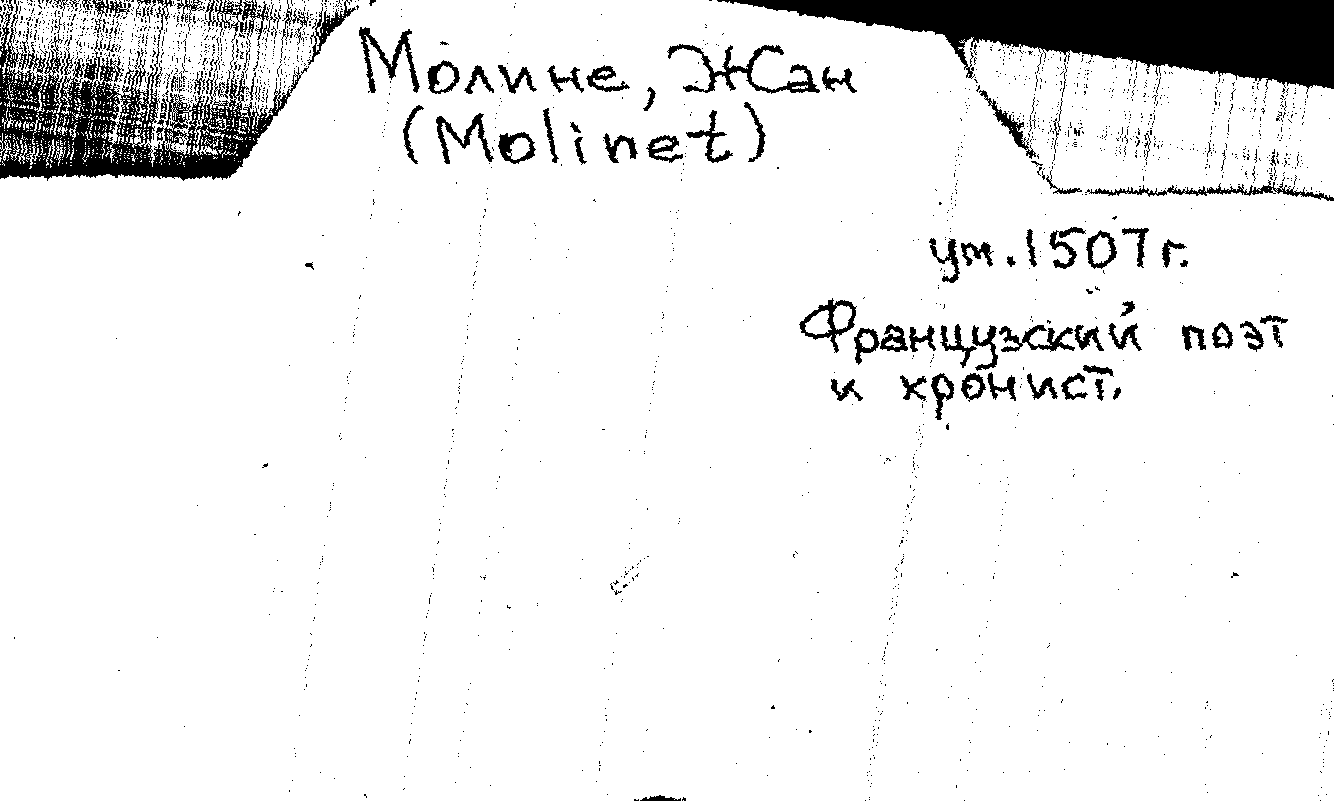 Молине, Жан
(Molinet)
ум. 1507 г.
Французский поэт
и хронист.